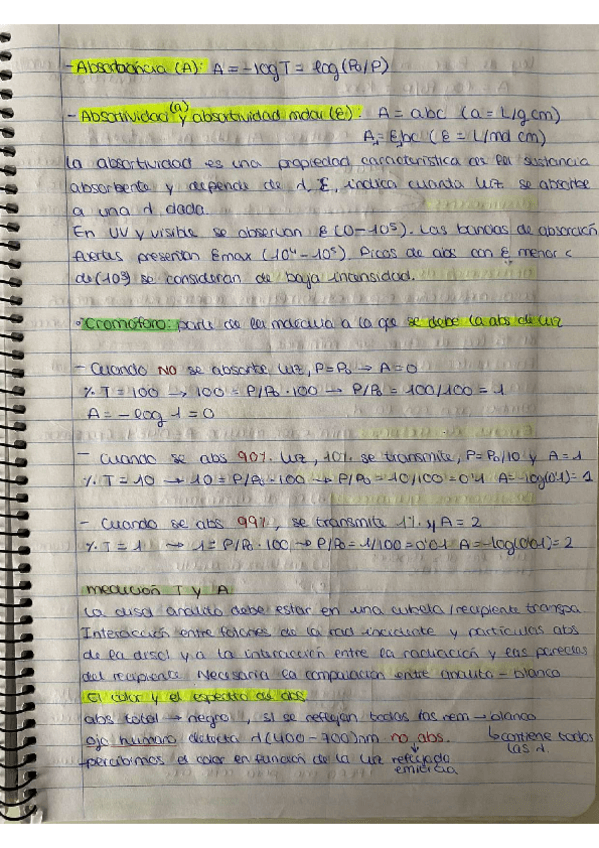 - Absorbancia (A): A = -log T = log (P₀/P)
- Absortividad (a) y absortividad molar (ε): A = abc (a = L/g cm)
A = εbc (ε = L/mol cm)
La absortividad es una propiedad característica de la sustancia
absorbente y depende de λ, ε, indica cuanta luz se absorbe
a una λ dada.
En UV y visible se observan ε (0-10⁵). Las bandas de absorción
fuertes presentan εmax (10⁴-10⁵). Picos de abs con ε menor
de (10³) se consideran de baja intensidad.
• Cromóforo: parte de la molécula a la que se debe la abs de luz
- Cuando NO se absorbe luz, P=P₀ → A=0
% T = 100 → 100 = P/P₀ · 100 → P/P₀ = 100/100 = 1
A = -log 1 = 0
- Cuando se abs 90% luz, 10% se transmite, P=P₀/10 y A=1
% T = 10 → 10 = P/P₀ · 100 → P/P₀ = 10/100 = 0'1 A = -log(0'1) = 1
- Cuando se abs 99%, se transmite 1% y A = 2
% T = 1 → 1 = P/P₀ · 100 → P/P₀ = 1/100 = 0'01 A = -log(0'01) = 2
medición T y A
La disol analito debe estar en una cubeta/recipiente transpa
Interacción entre fotones de la rad incidente y partículas abs
de la disol y a la interacción entre la radiación y las paredes
del recipiente Necesaria la comparación entre analito - blanco
El color y el espectro de abs
abs total → negro, si se reflejan todas las rem → blanco
ojo humano detecta λ (400-700) nm no abs. ↳ contiene todas las λ.
percibimos el color en función de la luz reflejada
emitida